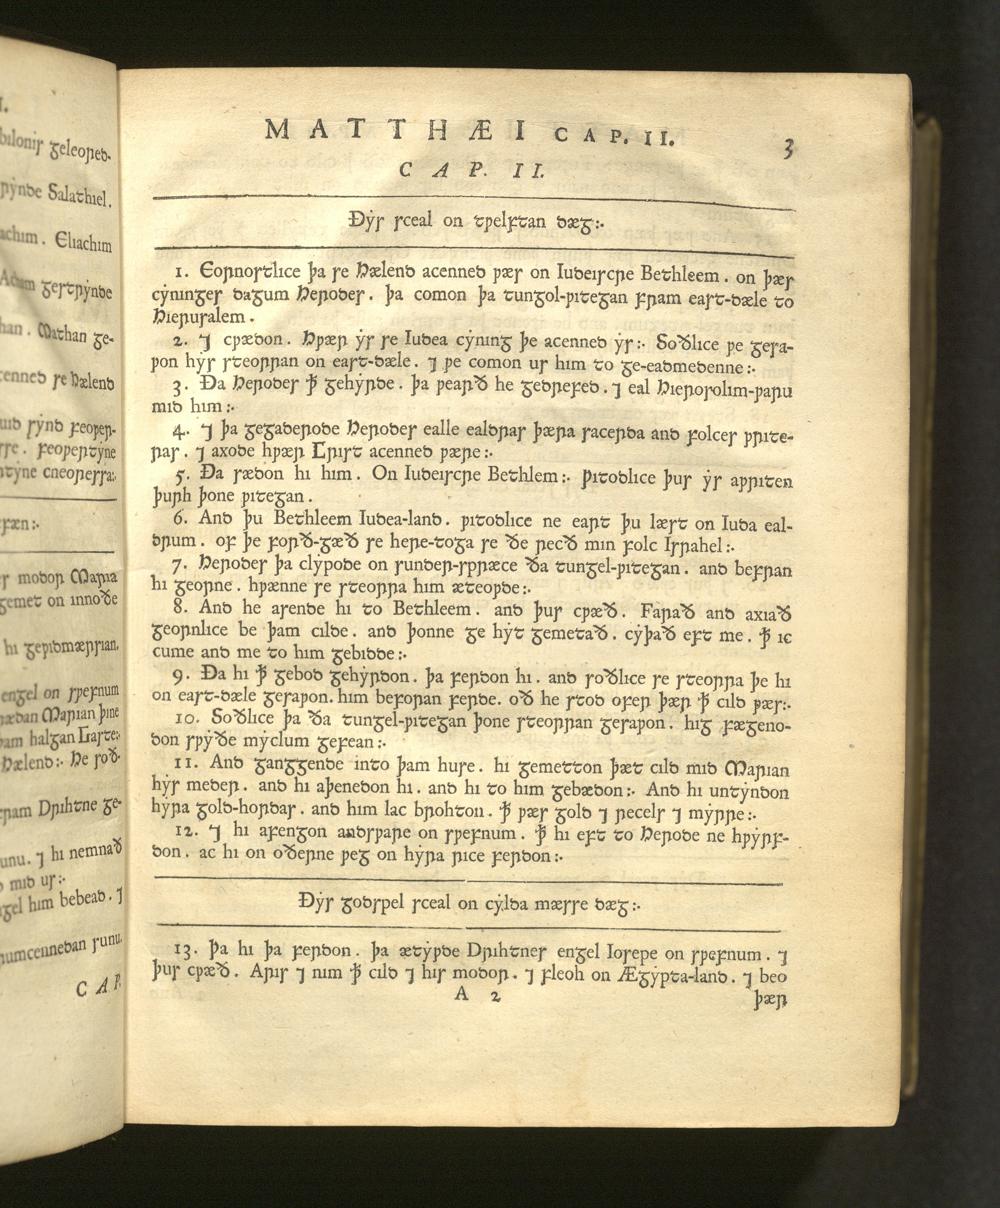 I.
geleored.
Salathiel.
Eliachim
gestrẏnde
Mathan ge-
se Hælend
sẏnd feoper-
feopertẏne
cneoressa:.
modor Maria
gemet on innoðe
hi geƿidmærsian.
engel on sƿefnum
Marian þine
halgan Gaste:.
Hælend:. He soð-
Drihtne ge-
⁊ hi nemnað
mid us:.
him bebead. ⁊
sunu.
CAP.
MATTHÆI CAP. II. 3
CAP. II.
Ðẏs sceal on tƿelftan dæg:.
1. Eornostlice þa se Hælend acenned ƿæs on Iudeiscre Bethleem. on þæs
cẏninges dagum Herodes. þa comon þa tungol-ƿitegan fram east-dæle to
Hierusalem.
2. ⁊ cƿædon. Hƿær ẏs se Iudea cẏning þe acenned ẏs:. Soðlice ƿe gesa-
ƿon hẏs steorran on east-dæle. ⁊ ƿe comon us him to ge-eadmedenne:.
3. Ða Herodes ꝥ gehẏrde. þa ƿearð he gedrefed. ⁊ eal Hierosolim-ƿaru
mid him:.
4. ⁊ þa gegaderode Herodes ealle ealdras þæra sacerda and folces ƿrite-
ras. ⁊ axode hƿær Crist acenned ƿære:.
5. Ða sædon hi him. On Iudeiscre Bethlem:. Ƿitodlice þus ẏs aƿriten
þurh þone ƿitegan.
6. And þu Bethleem Iudea-land. ƿitodlice ne eart þu læst on Iuda eal-
drum. of þe forð-gæð se here-toga se ðe recð min folc Israhel:.
7. Herodes þa clẏpode on sunder-spræce ða tungel-ƿitegan. and befran
hi georne. hƿænne se steorra him æteoƿde:.
8. And he asende hi to Bethleem. and þus cƿæð. Farað and axiað
geornlice be þam cilde. and þonne ge hẏt gemetað. cẏþað eft me. ꝥ ic
cume and me to him gebidde:.
9. Ða hi ꝥ gebod gehẏrdon. þa ferdon hi. and soðlice se steorra þe hi
on east-dæle gesaƿon. him beforan ferde. oð he stod ofer þær ꝥ cild ƿæs:.
10. Soðlice þa ða tungel-ƿitegan þone steorran gesaƿon. hig fægeno-
don sƿẏðe mẏclum gefean:.
11. And ganggende into þam huse. hi gemetton þæt cild mid Marian
hẏs meder. and hi aþenedon hi. and hi to him gebædon:. And hi untẏndon
hẏra gold-hordas. and him lac brohton. ꝥ ƿæs gold ⁊ recels ⁊ mẏrre:.
12. ⁊ hi afengon andsƿare on sƿefnum. ꝥ hi eft to Herode ne hƿẏrf-
don. ac hi on oðerne ƿeg on hẏra rice ferdon:.
Ðẏs godspel sceal on cẏlda mæsse dæg:.
13. Þa hi þa ferdon. þa ætẏƿde Drihtnes engel Iosepe on sƿefnum. ⁊
þus cƿæð. Aris ⁊ nim ꝥ cild ⁊ his modor. ⁊ fleoh on Ægẏpta-land. ⁊ beo
A 2 þær